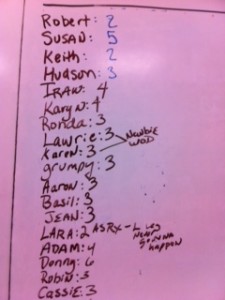 Robert: 2
SUSAN: 5
Keith: 2
Hudson: 3
IRAW: 4
Karyn: 4
Ronda: 3
Lawrie: 3
Karen: 3
Newbie
WOD
grumpy: 3
Aaron: 3
Basil: 3
JEAN: 3
LARA: 2 AS RX - L leg
never
gonna
happen
ADAM: 4
Donny: 6
Robin: 3
CASSIE: 3